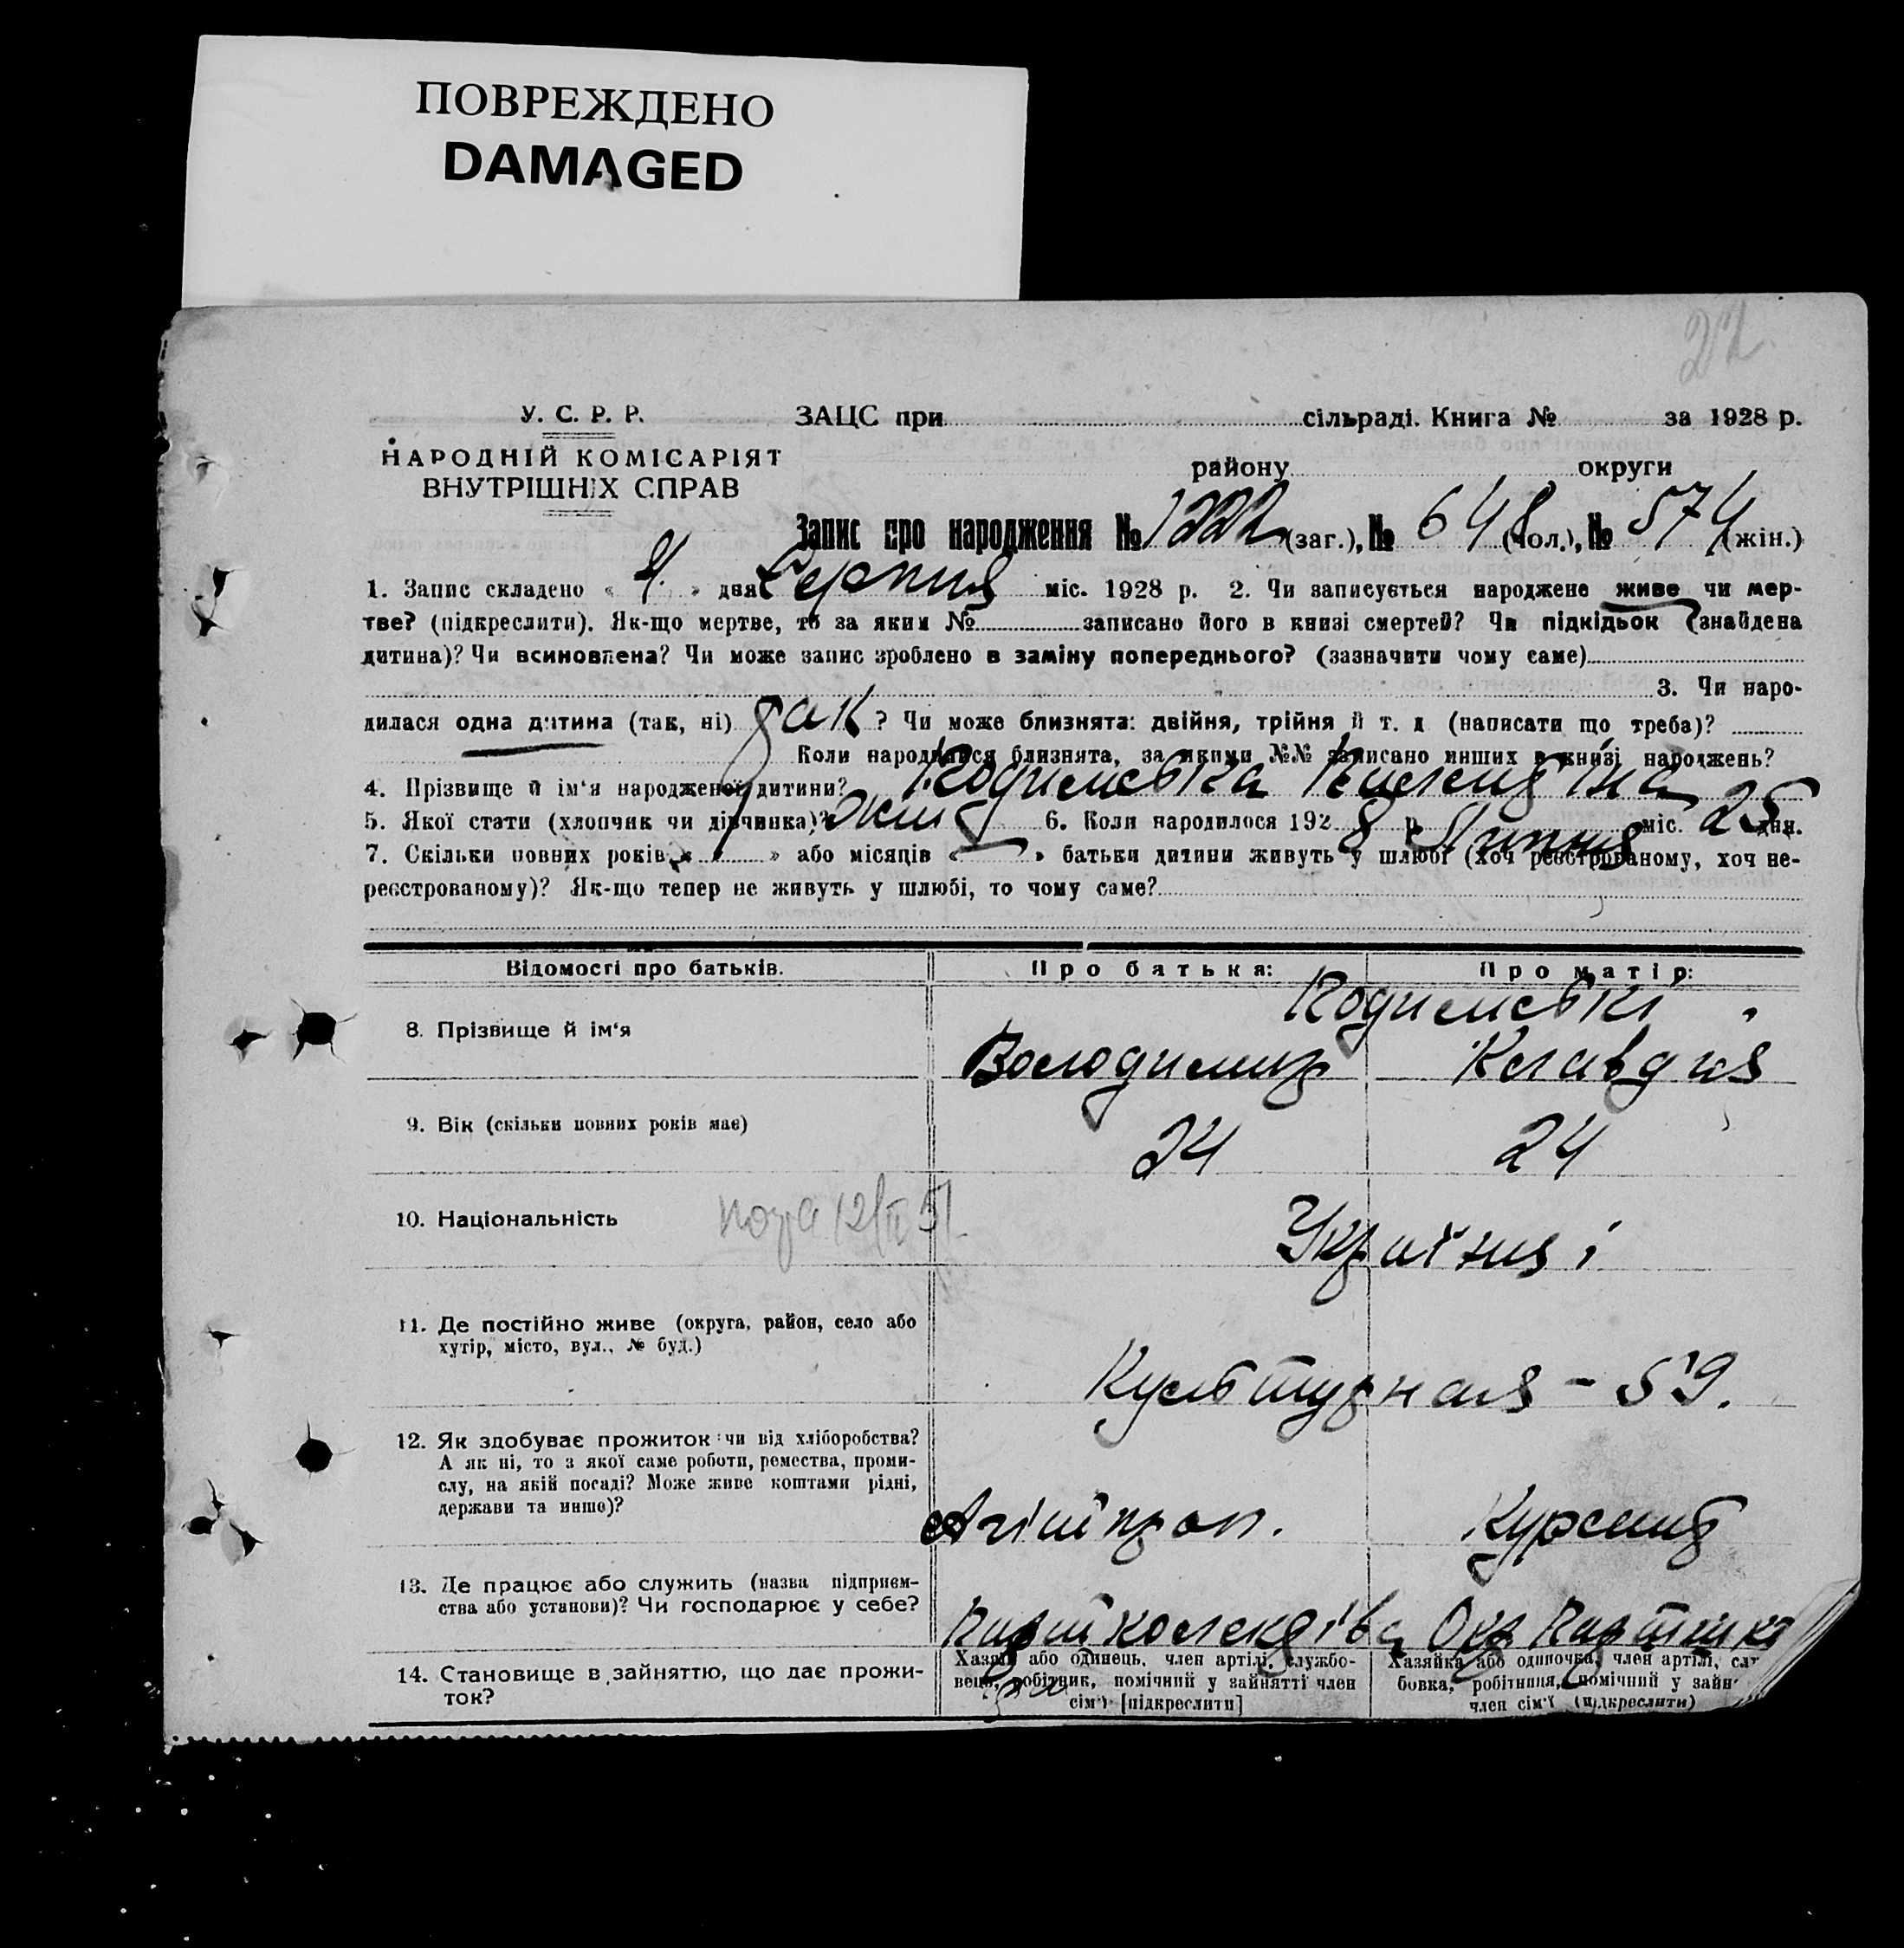 ПОВРЕЖДЕНО
DAMAGED
У. С. Р. Р. ЗАЦС при сільраді. Книга № за 1928 р.
НАРОДНІЙ КОМІСАРІЯТ
ВНУТРІШНІХ СПРАВ
району округи
Запис про народження № 1222 (заг.), № 648 (чол.), № 574 (жін.)
1. Запис складено « » дня Серпня міс. 1928 р. 2. Чи записується народжене живе чи мер-
тве? (підкреслити). Як-що мертве, то за яким № записано його в книзі смертей? Чи підкідьок (знайдена
дитина)? Чи всиновлена? Чи може запис зроблено в заміну попереднього? (зазначити чому саме)
3. Чи наро-
дилася одна дитина (так, ні) так ? Чи може близнята: двійня, трійня й т. д (написати що треба)?
Коли народилися близнята, за якими №№ записано инших в книзі народжень?
4. Прізвище й ім'я народженої дитини? Кодимська
5. Якої стати (хлопчик чи дівчинка)? жін 6. Коли народилося 1928 р. Липня міс. 25 дня.
7. Скільки повних років « » або місяців « » батьки дитини живуть у шлюбі (хоч реєстрованому, хоч не-
реєстрованому)? Як-що тепер не живуть у шлюбі, то чому саме?
Відомості про батьків. Про батька: Про матір:
Кодимські
8. Прізвище й ім'я Володимир Клавдия
9. Вік (скільки повних років має) 24 24
10. Національність Українці
11. Де постійно живе (округа, район, село або
хутір, місто, вул., № буд.)
Культурная - 59.
12. Як здобуває прожиток чи від хліборобства?
А як ні, то з якої саме роботи, ремества, проми-
слу, на якій посаді? Може живе коштами рідні,
держави та инше)?
Агітпроп. Курсант
13. Де працює або служить (назва підприєм-
ства або установи)? Чи господарює у себе?
Партколектива Окр
14. Становище в зайняттю, що дає прожи-
ток?
Хазяїн або одинець, член артілі, службо-
вець, робітник, помічний у зайнятті член
сім'ї [підкреслити]
Хазяйка або одиночка, член артілі, слу
бовка, робітниця, помічний у зайн
член сім'ї (підкреслити)